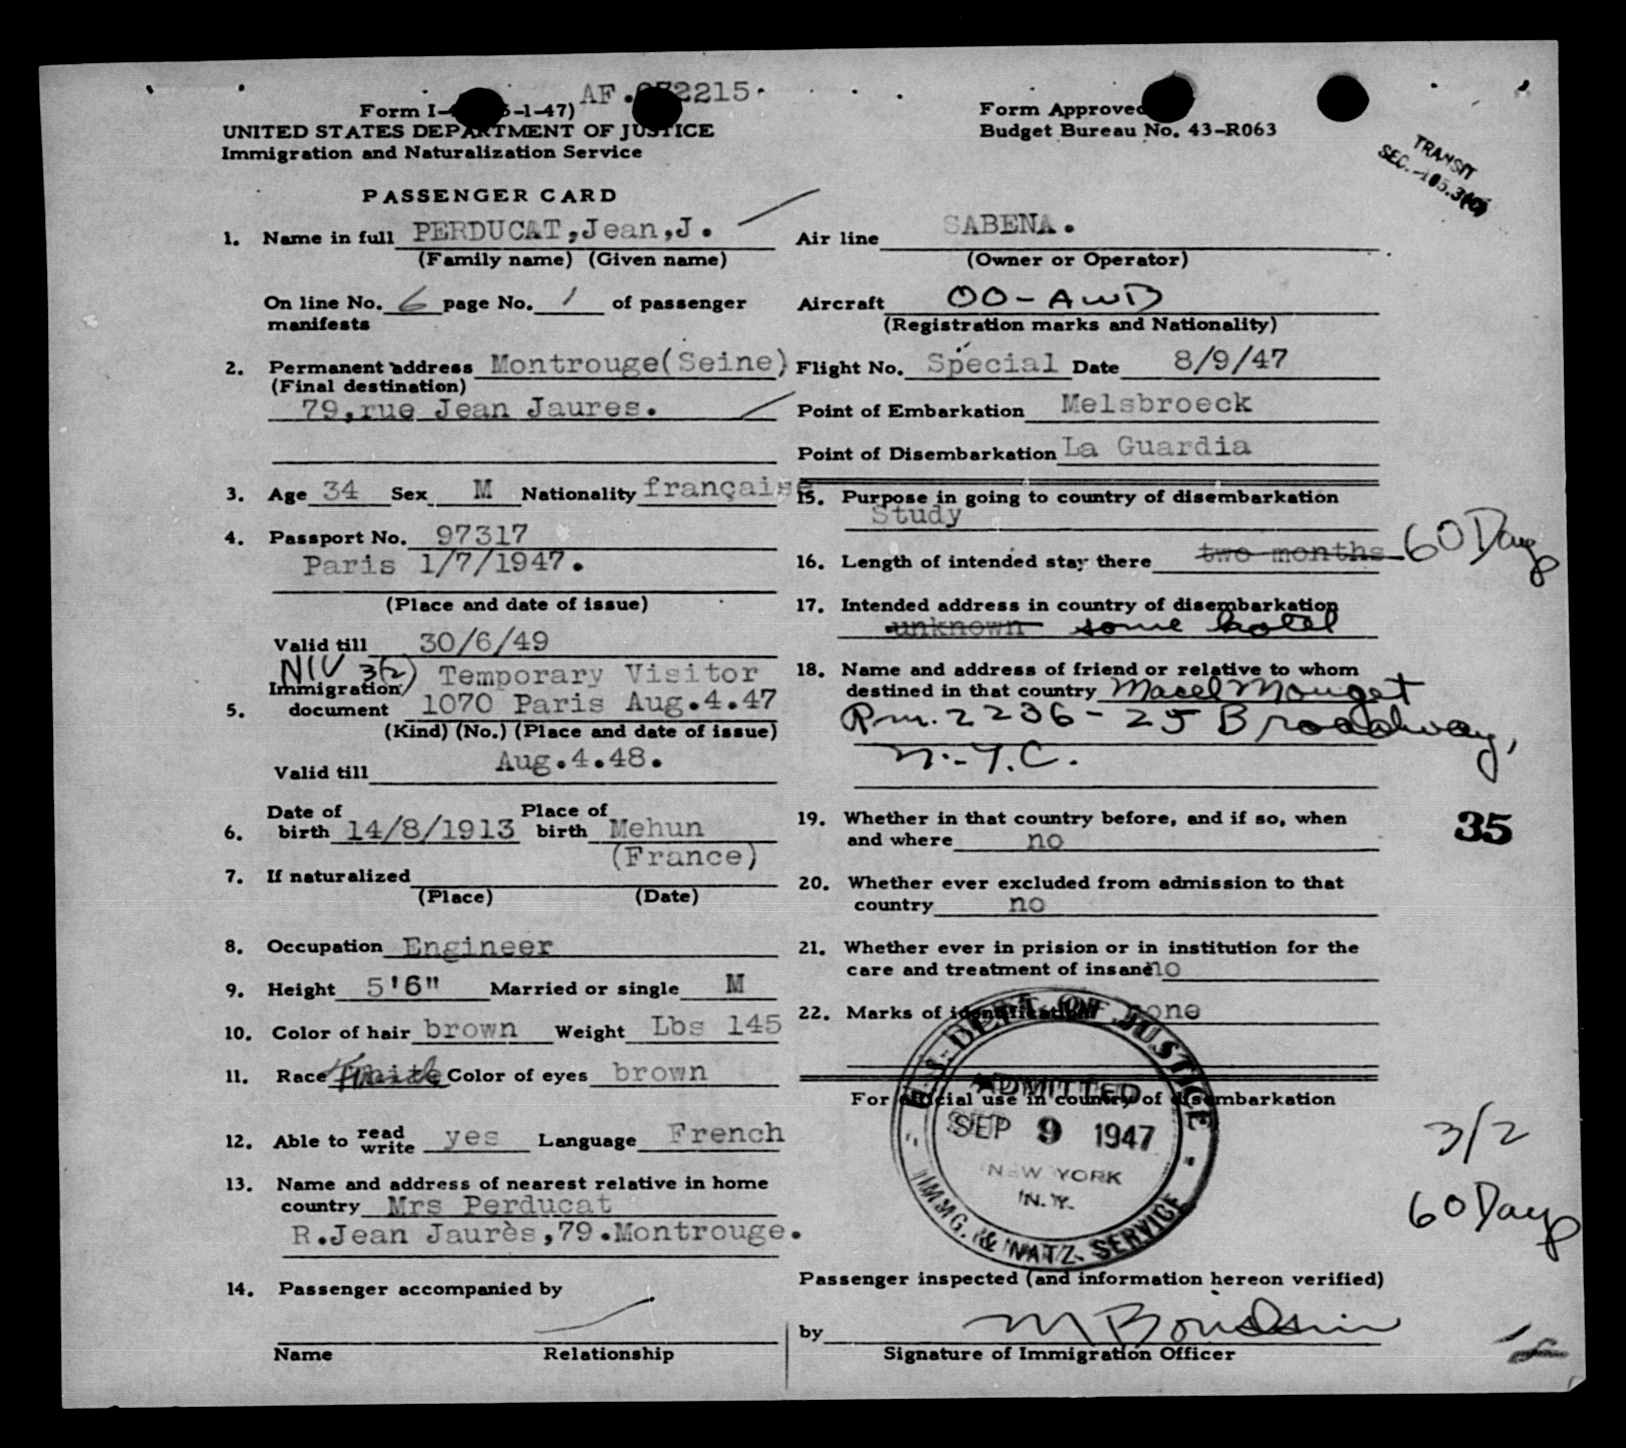 AF. 2215.
Form I- -1-47)
UNITED STATES DEPARTMENT OF JUSTICE
Immigration and Naturalization Service
Form Approved
Budget Bureau No. 43-R063
TRANSIT
SEC.
PASSENGER CARD
1. Name in full PERDUCAT,Jean,J.
(Family name) (Given name)
On line No. 6 page No. 1 of passenger
manifests
2. Permanent address Montrouge(Seine)
(Final destination)
79,rue Jean Jaures.
3. Age 34 Sex M Nationality française
4. Passport No. 97317
Paris 1/7/1947.
(Place and date of issue)
Valid till 30/6/49
NIV 3(2) Temporary Visitor
Immigration
5. document 1070 Paris Aug.4.47
(Kind) (No.) (Place and date of issue)
Valid till Aug.4.48.
Date of Place of
6. birth 14/8/1913 birth Mehun
(France)
7. If naturalized
(Place) (Date)
8. Occupation Engineer
9. Height 5'6" Married or single M
10. Color of hair brown Weight Lbs 145
11. Race Color of eyes brown
12. Able to read write yes Language French
13. Name and address of nearest relative in home
country Mrs Perducat
R.Jean Jaurès,79.Montrouge.
14. Passenger accompanied by
Name Relationship
Air line SABENA.
(Owner or Operator)
Aircraft OO-AWD
(Registration marks and Nationality)
Flight No. Special Date 8/9/47
Point of Embarkation Melsbroeck
Point of Disembarkation La Guardia
15. Purpose in going to country of disembarkation
Study
16. Length of intended stay there two months 60 Days
17. Intended address in country of disembarkation
unknown some hotel
18. Name and address of friend or relative to whom
destined in that country Macel Mouget
Rm. 2236 - 25 Broadway,
N.Y.C.
19. Whether in that country before, and if so, when
and where no
35
20. Whether ever excluded from admission to that
country no
21. Whether ever in prision or in institution for the
care and treatment of insane no
22. Marks of identification none
For official use in country of disembarkation
U.S. DEPT. OF JUSTICE
ADMITTED
SEP 9 1947
NEW YORK
N.Y.
IMMG. & NATZ. SERVICE
3/2
60 Days
Passenger inspected (and information hereon verified)
by
Signature of Immigration Officer